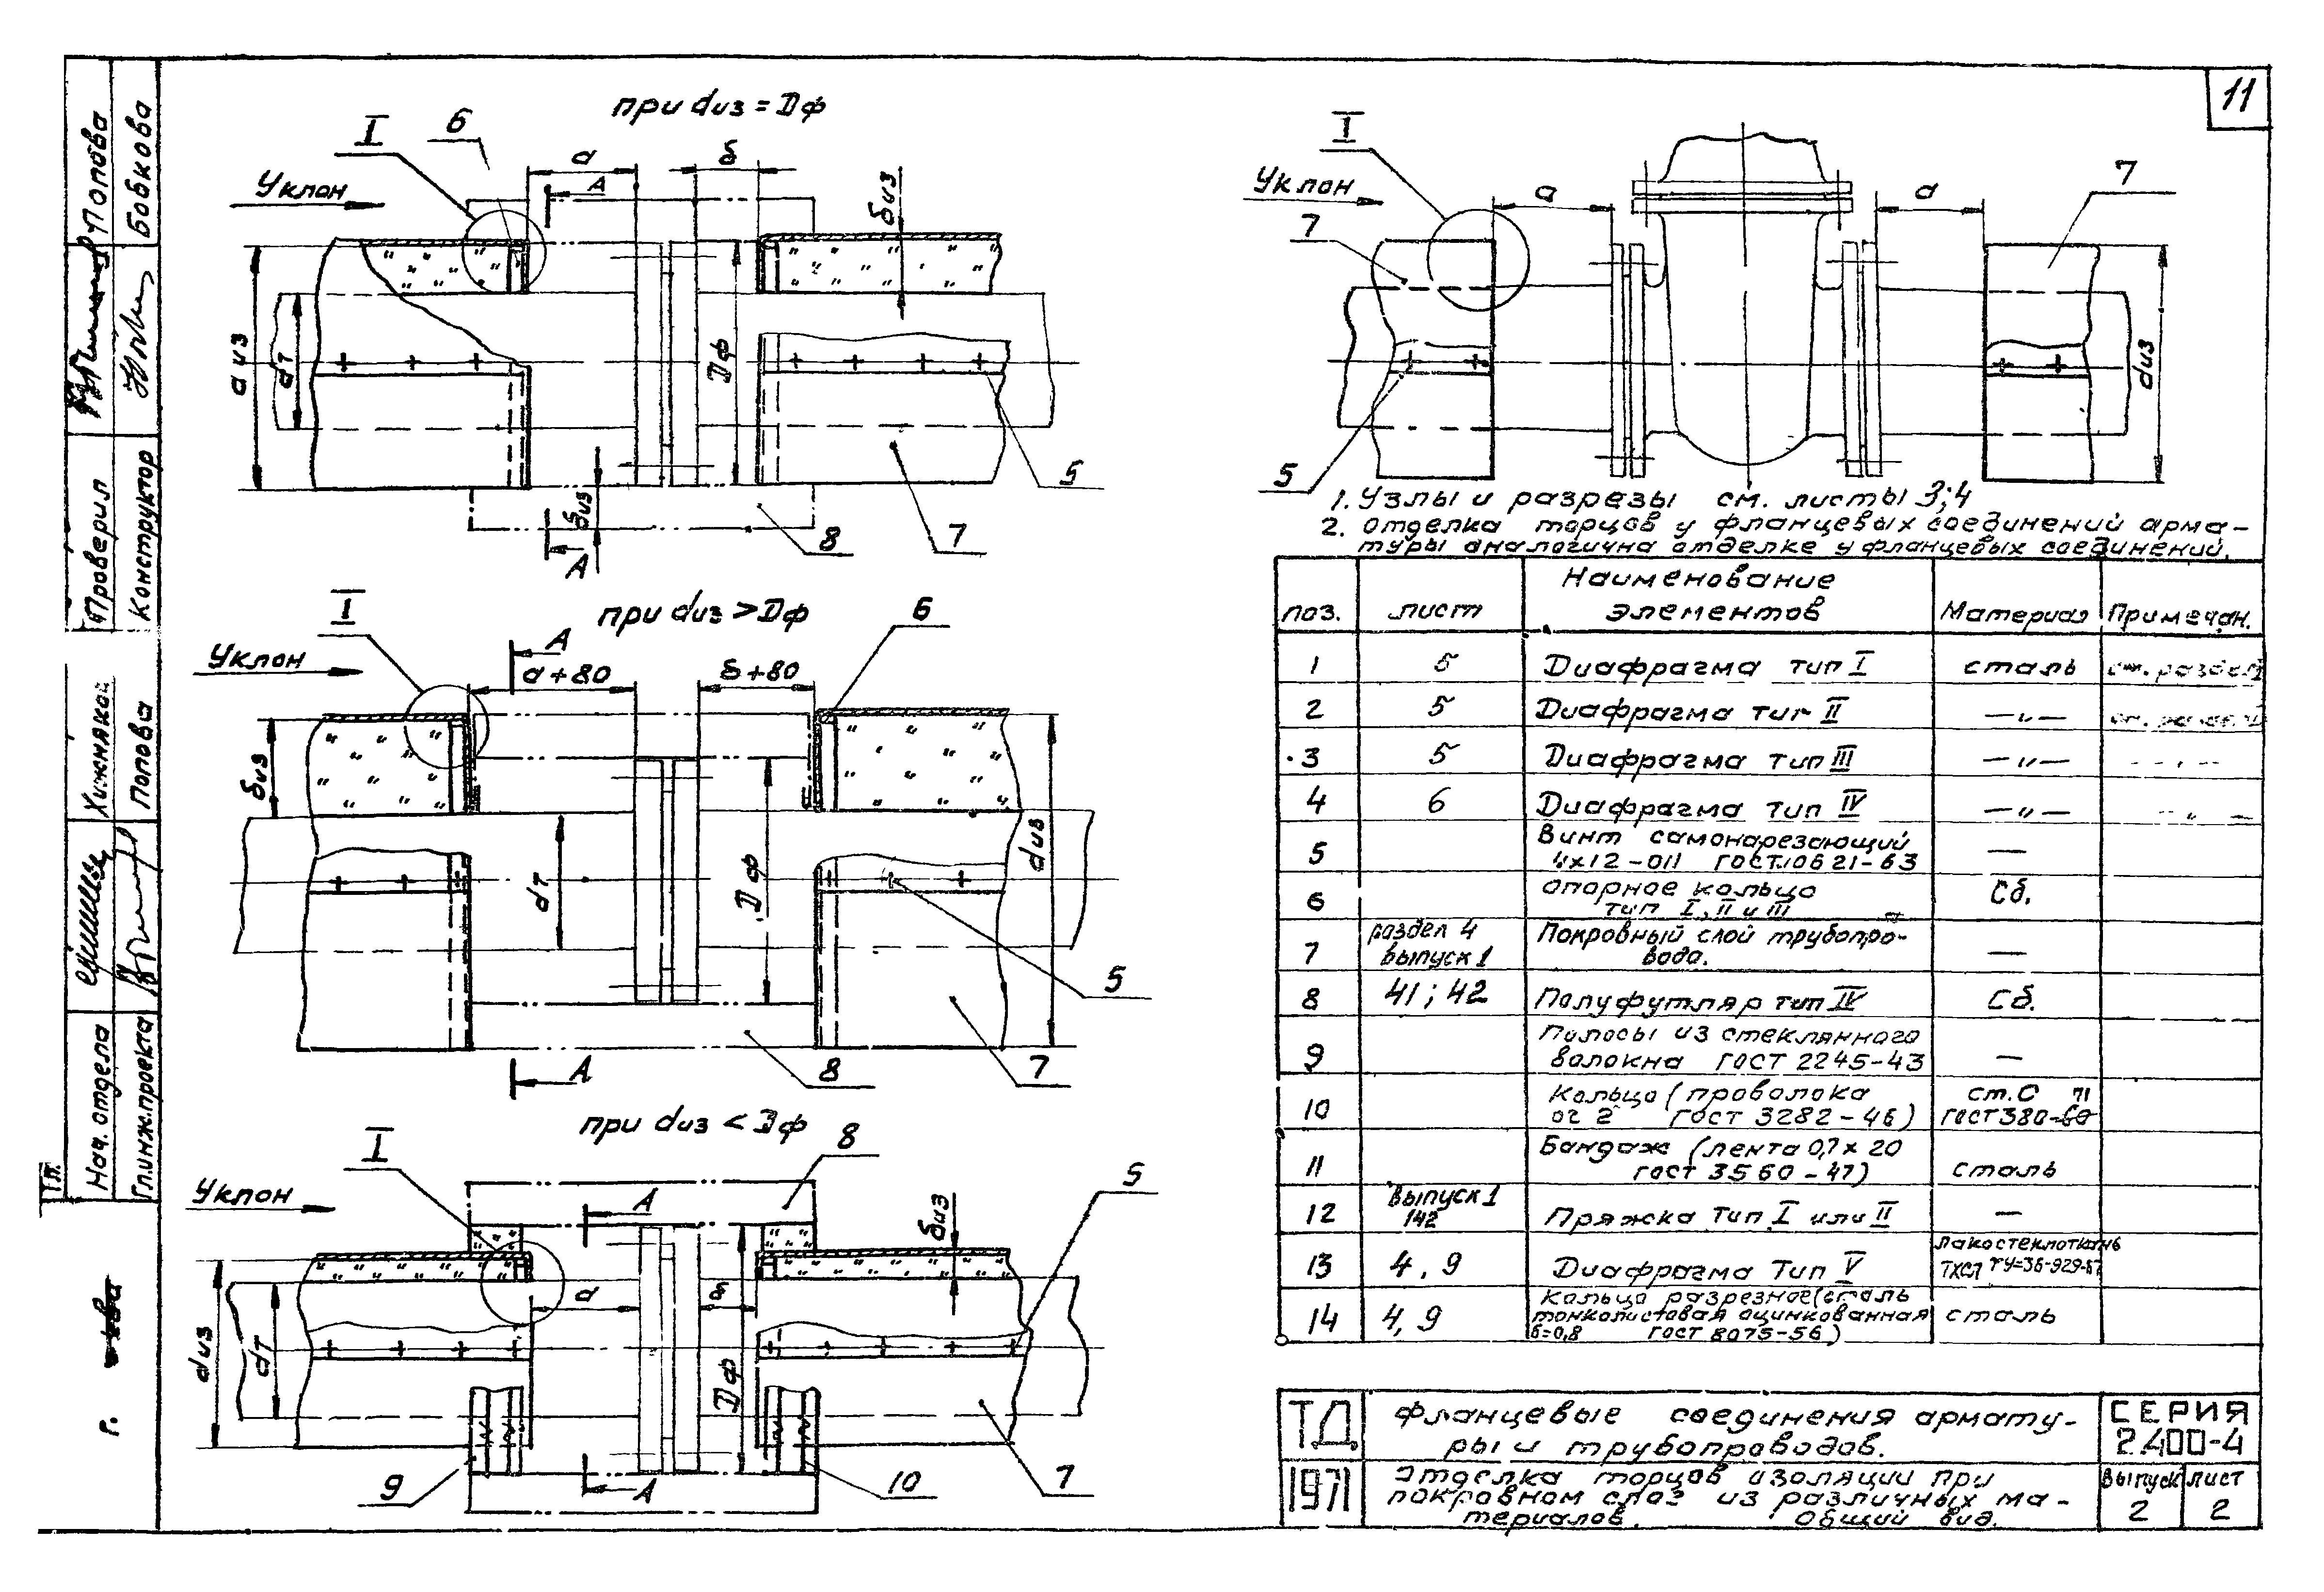 11
при dиз = Dф
I
6
Уклон
а
б
А
δиз
dиз
dт
Dф
5
7
8
δиз
А
при dиз > Dф
I
6
Уклон
А
а+80
б+80
δиз
dт
Dф
dиз
5
7
8
А
при dиз < Dф
I
8
5
Уклон
А
δиз
а
б
dиз
dт
Dф
9
10
7
А
I
Уклон
7
а
а
7
dиз
5
1. Узлы и разрезы см. листы 3;4
2. Отделка торцов у фланцевых соединений арма-
туры аналогична отделке у фланцевых соединений.
поз. лист Наименование элементов Материал Примечан.
1 5 Диафрагма тип I сталь см. раздел
2 5 Диафрагма тип II —〃—
3 5 Диафрагма тип III —〃—
4 6 Диафрагма тип IV —〃— 〃
5 Винт самонарезающий —
4х12-011 ГОСТ 10621-63
6 Опорное кольцо Сб.
тип I, II и III
7 раздел 4 Покровный слой трубопро- —
выпуск 1 вода.
8 41; 42 Полуфутляр тип IV Сб.
9 Полосы из стеклянного —
волокна ГОСТ 2245-43
10 Кольцо (проволока ст.0 71
ос 2 ГОСТ 3282-46) ГОСТ 380-60
11 Бандаж (лента 0,7х20
ГОСТ 3560-47) сталь
12 Выпуск 1 142 Пряжка тип I или II —
13 4, 9 Диафрагма тип V лакостеклоткань
ТХСП ТУ=36-929-67
14 4, 9 Кольцо разрезное (сталь
тонколистовая оцинкованная сталь
б=0,8 ГОСТ 8075-56)
ТД
1971
Фланцевые соединения армату-
ры и трубопроводов.
Отделка торцов изоляции при
покровном слое из различных ма-
териалов. Общий вид.
СЕРИЯ
2.400-4
Выпуск лист
2 2
Проверил Попова
Конструктор Бобкова
Нач. отдела
Гл.инж.проекта Попова
т.п.
г.